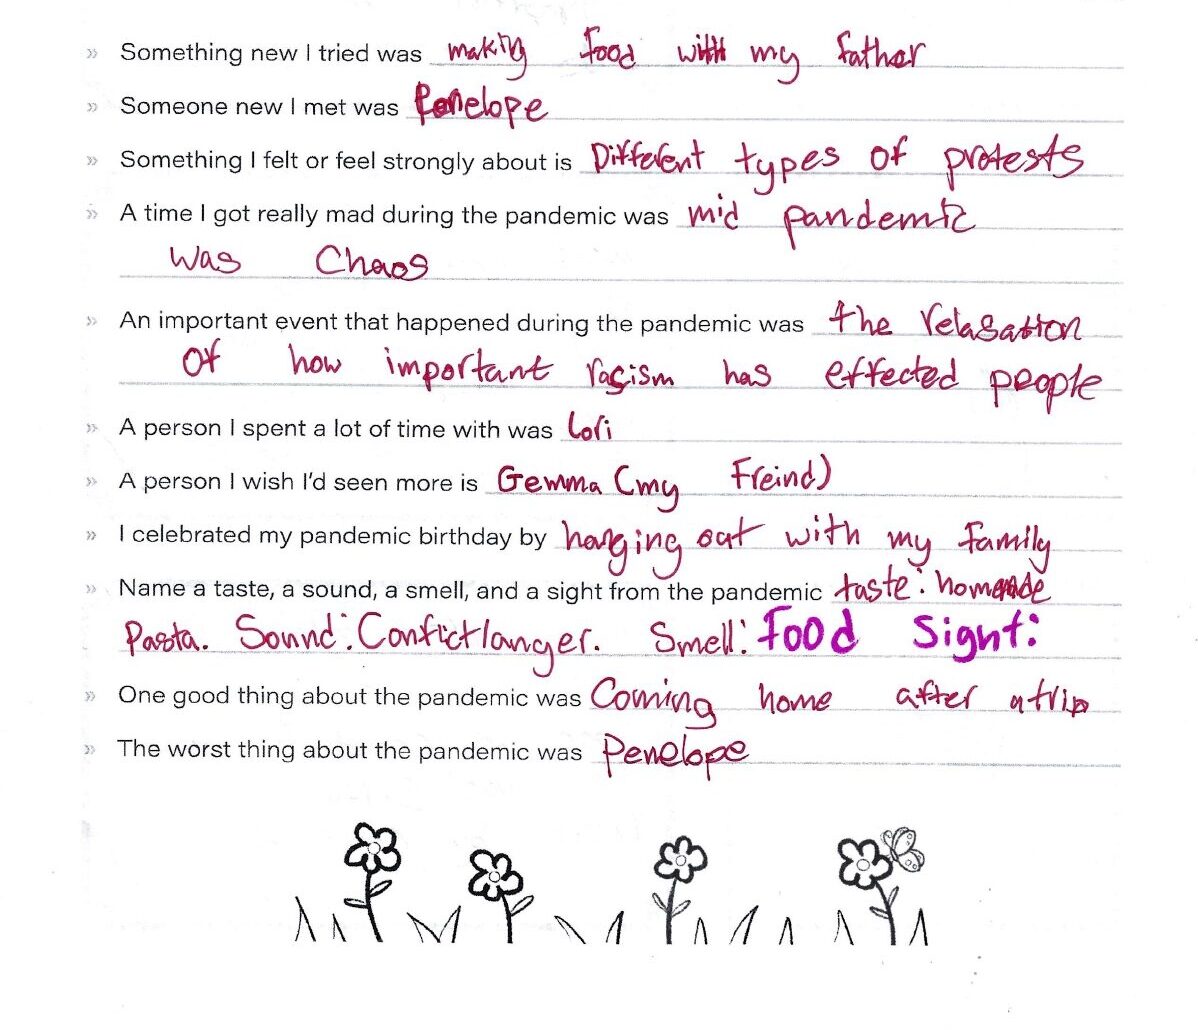 » Something new I tried was making food with my father
» Someone new I met was Penelope
» Something I felt or feel strongly about is Different types of protests
» A time I got really mad during the pandemic was mid pandemic
was Chaos
» An important event that happened during the pandemic was the relasation
Of how important racism has effected people
» A person I spent a lot of time with was Lori
» A person I wish I'd seen more is Gemma (my Freind)
» I celebrated my pandemic birthday by hanging out with my family
» Name a taste, a sound, a smell, and a sight from the pandemic taste: homemade
Pasta. Sound: Smell: Food Sight:
» One good thing about the pandemic was Coming home after a trip
» The worst thing about the pandemic was Penelope